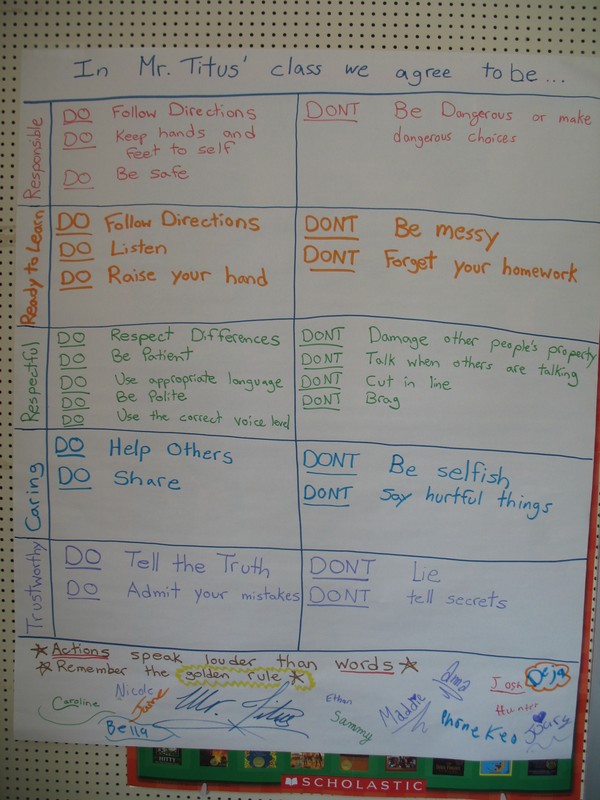 In Mr. Titus' class we agree to be...
Responsible
DO Follow Directions
DO Keep hands and
feet to self
DO Be safe
DONT Be Dangerous or make
dangerous choices
Ready to Learn
DO Follow Directions
DO Listen
DO Raise your hand
DONT Be messy
DONT Forget your homework
Respectful
DO Respect Differences
DO Be Patient
DO Use appropriate language
DO Be Polite
DO Use the correct voice level
DONT Damage other people's property
DONT Talk when others are talking
DONT Cut in line
DONT Brag
Caring
DO Help Others
DO Share
DONT Be selfish
DONT Say hurtful things
Trustworthy
DO Tell the Truth
DO Admit your mistakes
DONT Lie
DONT tell secrets
Actions speak louder than words
Remember the golden rule
Caroline
Nicole
Bella
Mr. Titus
Ethan
Sammy
Maddie
Josh
Deja
Hunter
SCHOLASTIC